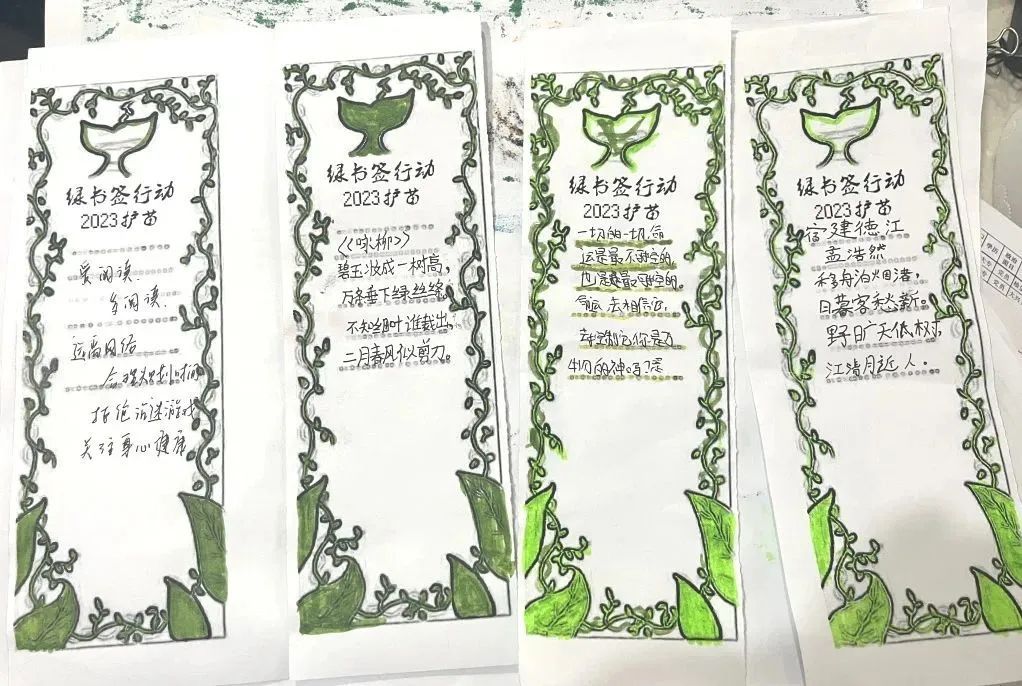 绿书签行动
2023护苗
爱阅读、
多阅读、
远离网络
合理规划时间
拒绝沉迷游戏
关注身心健康
绿书签行动
2023护苗
《咏柳》
碧玉妆成一树高，
万条垂下绿丝绦。
不知细叶谁裁出，
二月春风似剪刀。
绿书签行动
2023护苗
一切的一切,命
运是最不确定的,
也是最
去相信它
绿书签行动
2023护苗
宿建德江
孟浩然
移舟泊烟渚，
日暮客愁新。
野旷天低树，
江清月近人。
学历
党员